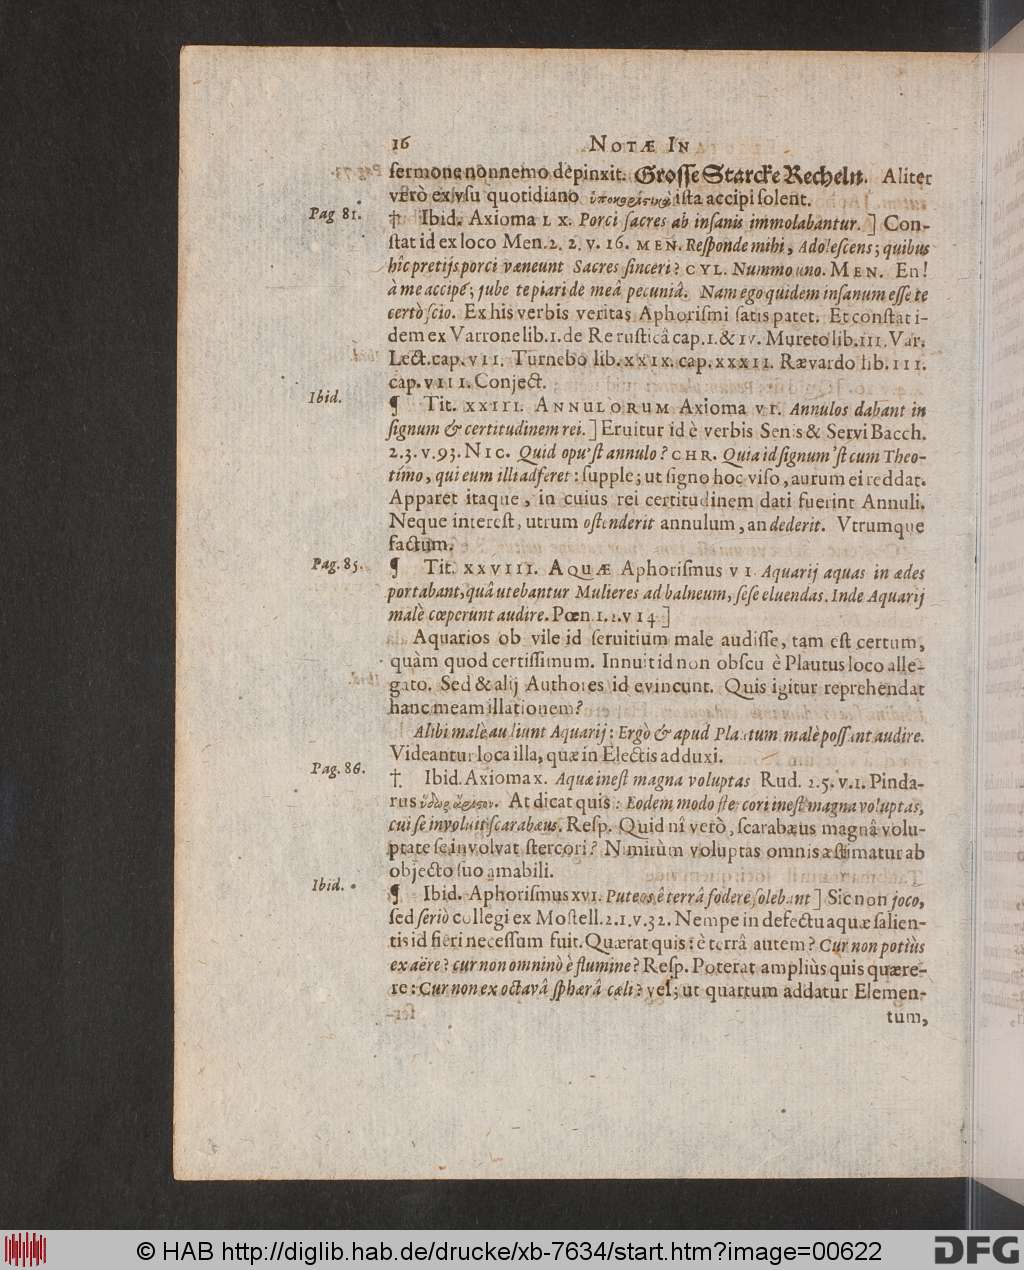 16 NOTÆ IN
ſermone nonnemo depinxit. Groſſe Starcke Recheln. Aliter
verò ex vſu quotidiano ista accipi ſolent.
Pag 81. ‡ Ibid. Axioma LX. Porci ſacres ab inſanis immolabantur. ] Con-
ſtat id ex loco Men. 2. 2. v. 16. MEN. Reſponde mihi, Adoleſcens; quibus
hîc pretijs porci væneunt Sacres ſinceri? CYL. Nummo uno. MEN. En!
à me accipé; jube te piari de meâ pecuniâ. Nam ego quidem inſanum eſſe te
certò ſcio. Ex his verbis veritas Aphoriſmi ſatis patet. Et conſtat i-
dem ex Varrone lib. 1. de Re ruſticâ cap. 1. & IV. Mureto lib. III. Var.
Lect. cap. VII. Turnebo lib. XXIX. cap. XXXII. Rævardo lib. III.
cap. VIII. Conject.
Ibid. ¶ Tit. XXIII. ANNULORUM Axioma VI. Annulos dabant in
ſignum & certitudinem rei. ] Eruitur id è verbis Senis & Servi Bacch.
2. 3. v. 93. NIC. Quid opu'ſt annulo? CHR. Quia id ſignum'ſt cum Theo-
timo, qui eum illi adferet: ſupple; ut ſigno hoc viſo, aurum ei reddat.
Apparet itaque, in cuius rei certitudinem dati fuerint Annuli.
Neque intereſt, utrum oſtenderit annulum, an dederit. Vtrumque
factum.
Pag. 85. ¶ Tit. XXVIII. AQUÆ Aphoriſmus VI. Aquarij aquas in ædes
portabant, quâ utebantur Mulieres ad balneum, ſeſe eluendas. Inde Aquarij
malè cœperunt audire. Pœn. 1. 2. v 14 ]
Aquarios ob vile id ſeruitium male audiſſe, tam eſt certum,
quàm quod certiſſimum. Innuit id non obſcu è Plautus loco alle-
gato. Sed & alij Authores id evincunt. Quis igitur reprehendat
hanc meam illationem?
Alibi malè audiunt Aquarij: Ergò & apud Plautum malè poſſunt audire.
Videantur loca illa, quæ in Electis adduxi.
Pag. 86. ‡ Ibid. Axioma X. Aquæ ineſt magna voluptas Rud. 2. 5. v. 1. Pinda-
rus ὕδωρ ἄριστον. At dicat quis: Eodem modo ſtercori ineſt magna voluptas,
cui ſe involuit ſcarabæus. Reſp. Quid nî verò, ſcarabæus magnâ volu-
ptate ſe involvat ſtercori? Nimirùm voluptas omnis æſtimatur ab
objecto ſuo amabili.
Ibid. ¶ Ibid. Aphoriſmus XVI. Puteos è terrâ fodere ſolebant ] Sic non joco,
ſed ſeriò collegi ex Moſtell. 2. 1. v. 32. Nempe in defectu aquæ ſalien-
tis id fieri neceſſum fuit. Quærat quis: è terrâ autem? Cur non potiùs
ex aëre? cur non omninò è flumine? Reſp. Poterat ampliùs quis quære-
re: Cur non ex octavâ ſphærâ cæli? vel; ut quartum addatur Elemen-
tum,
© HAB http://diglib.hab.de/drucke/xb-7634/start.htm?image=00622 DFG